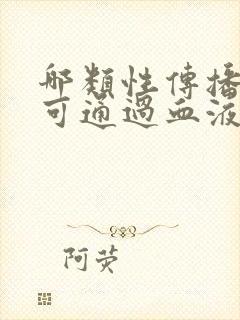 哪類性傳播
可通過血液
阿荧